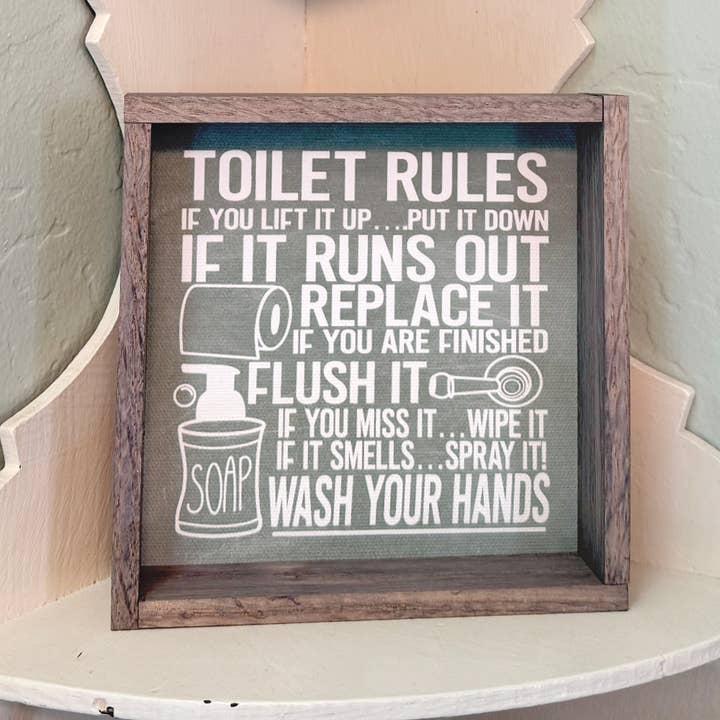 TOILET RULES
IF YOU LIFT IT UP....PUT IT DOWN
IF IT RUNS OUT
REPLACE IT
IF YOU ARE FINISHED
FLUSH IT
IF YOU MISS IT...WIPE IT
IF IT SMELLS...SPRAY IT!
SOAP
WASH YOUR HANDS